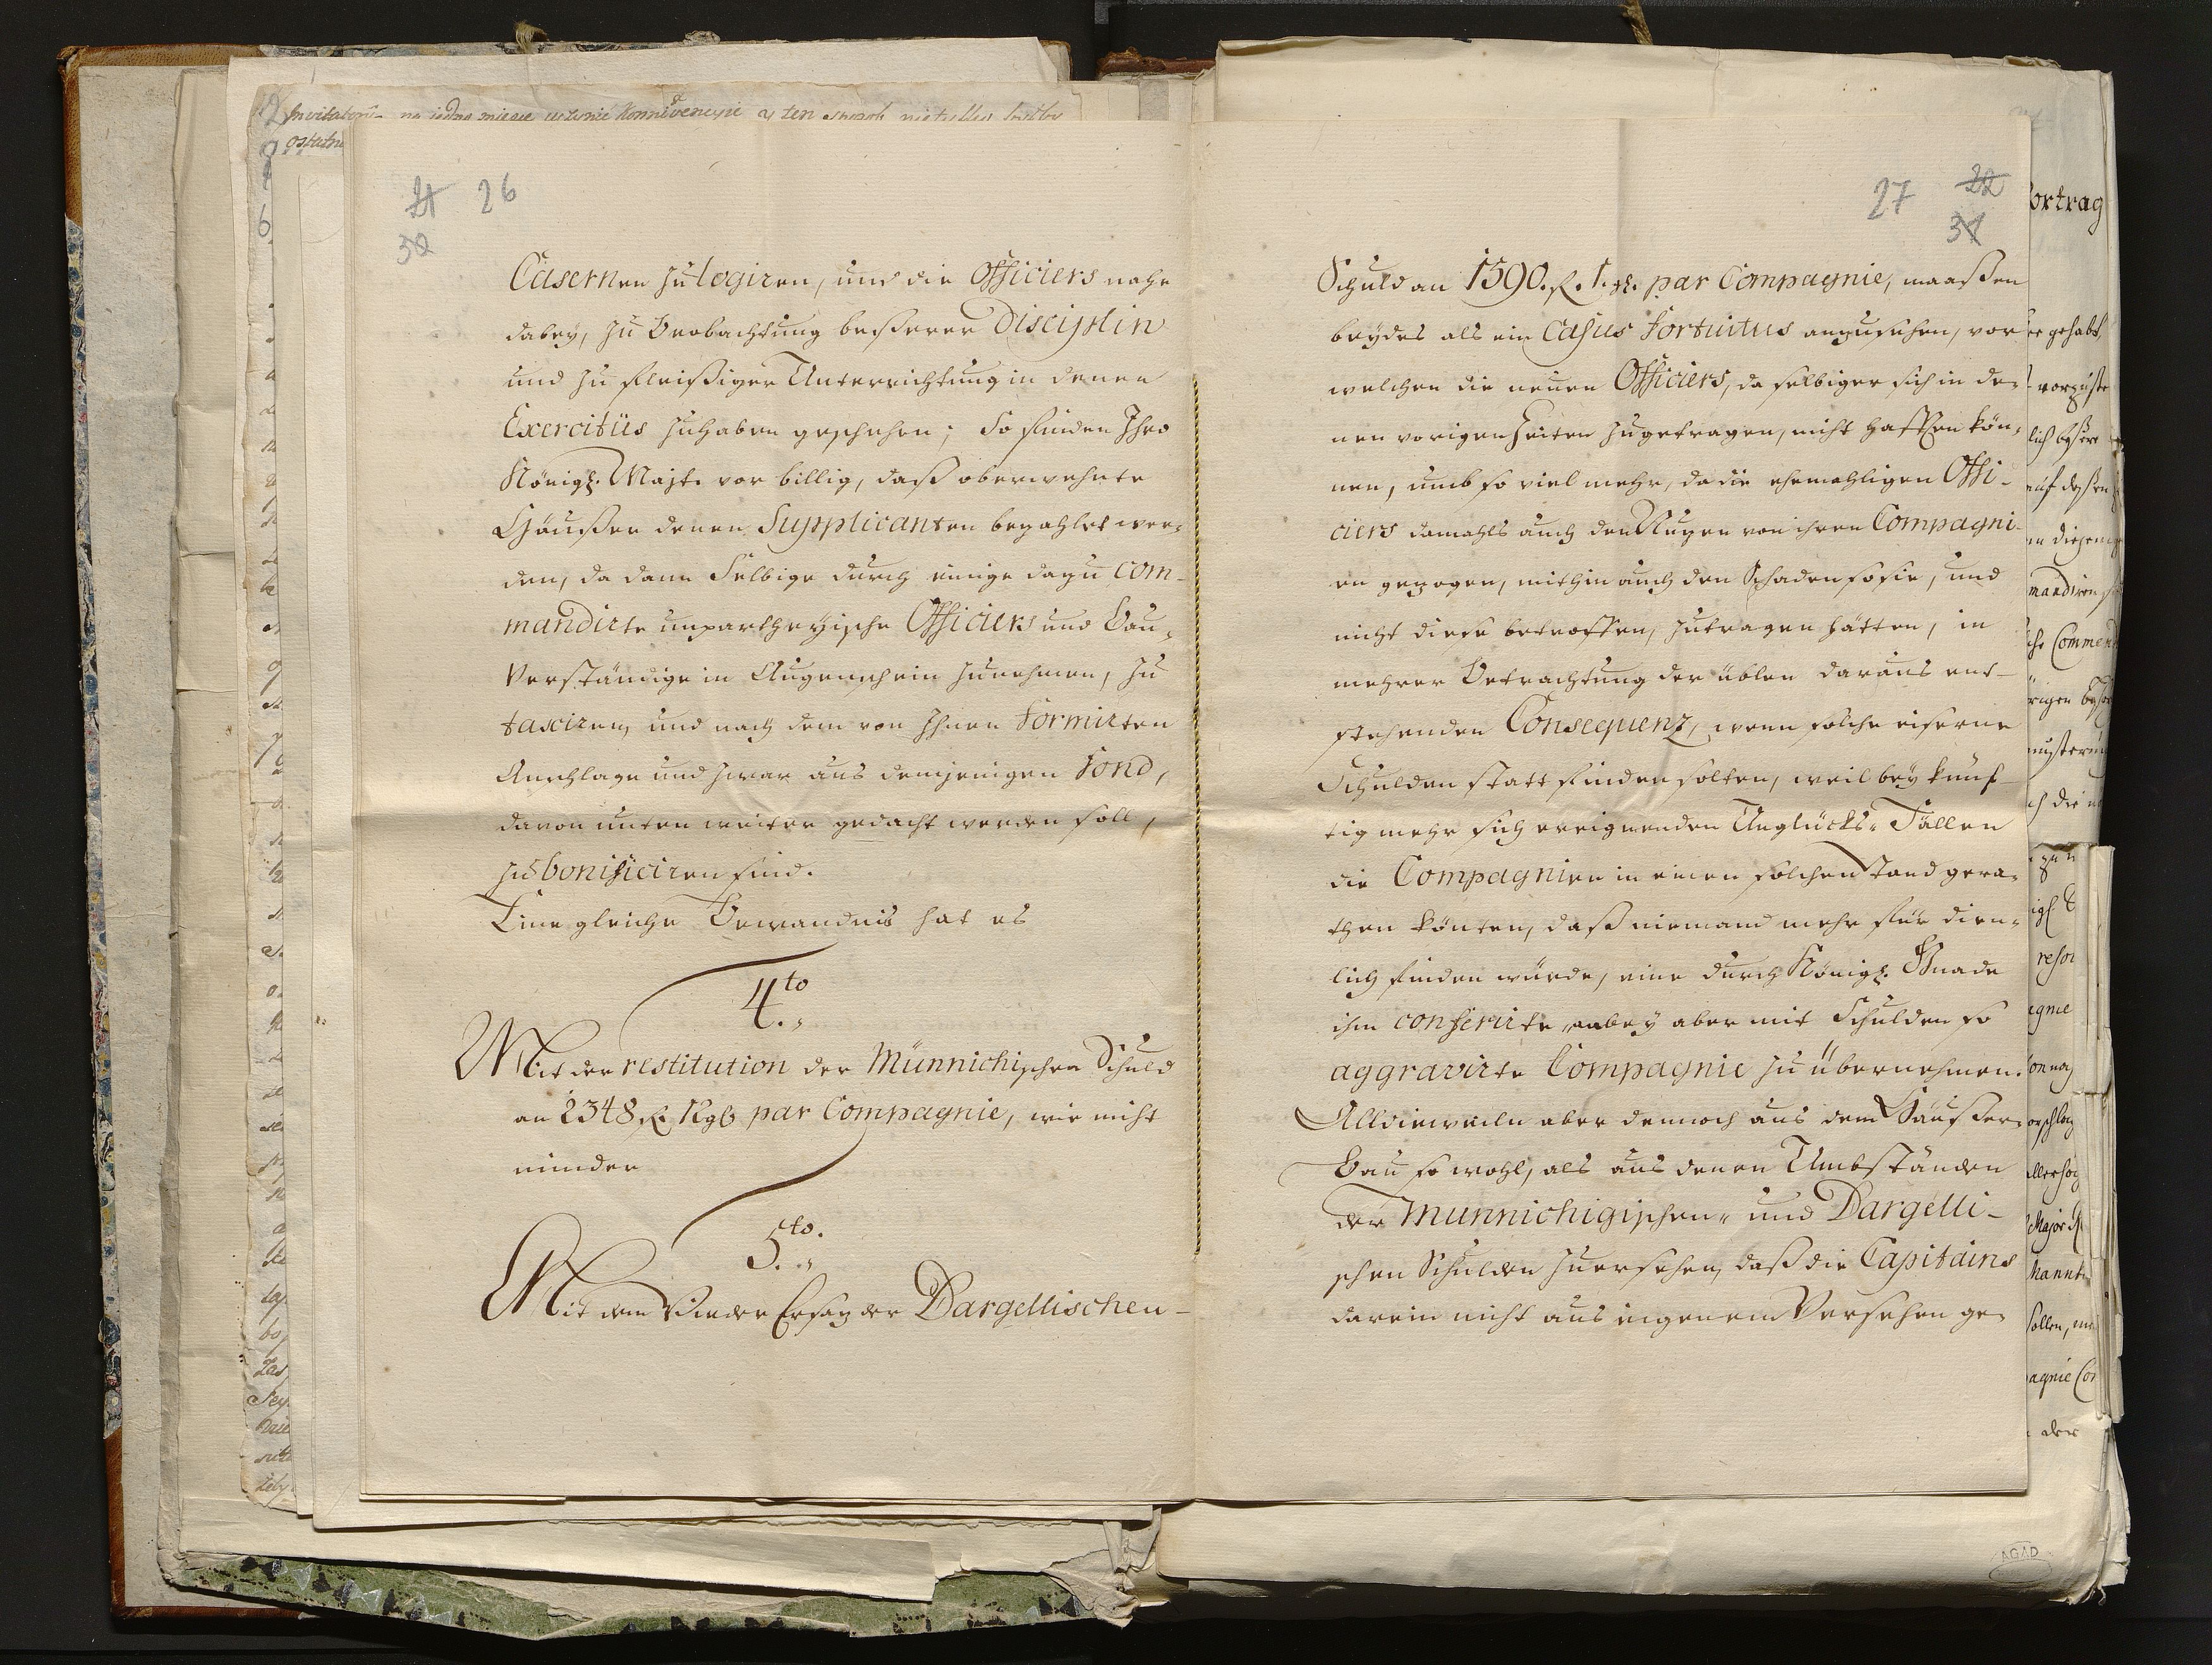 26
30
Casernen zu logiren, und die Officiers nahe
dabey, zu Beobachtung beßerer Disciplin
und zu fleißiger Unterrichtung in denen
Exercitiis zuhaben geschehen; So finden Ihro
Königl. Majt. vor billig, daß oberwehnte
Häußer denen Supplicanten bezahlet wer-
den, da dann Selbige durch einige dazu com-
mandirte unpartheyische Officiers und Bau-
Verständige in Augenschein zunehmen, zu
taxiren, und nach dem von Ihnen formirten
Anschlage und zwar aus demjenigen Fond,
davon unten weiter gedacht werden soll,
zu bonificiren sind.
Eine gleiche Bewandnis hat es
4.to
Mit der restitution der Münnichischen Schuld
an 2348 f. par Compagnie, wie nicht
minder
5.to
Mit dem Wieder Ersatz der Dargellischen-
27
Schuld an 1590. f. 1. gl. par Compagnie, maaßen
beydes als ein Casus Fortuitus anzusehen, vor
welchen die neuen Officiers, da selbiger sich in de-
nen vorigen Zeiten zugetragen, nicht hafften kön-
nen, umb so viel mehr, da die ehemahligen Offi-
ciers damahls auch den Nuzen von ihren Compagni-
en gezogen, mithin auch den Schaden so sie, und
nicht diese betroffen, zutragen hätten, in
mehrer Betrachtung der üblen daraus ent-
stehenden Consequenz, wenn solche eiserne
Schulden statt finden solten, weil bey künf-
tig mehr sich ereignenden Unglücks-Fällen
die Compagnien in einen solchen Stand gera-
then könten, daß niemand mehr für dien-
lich finden würde, eine durch Königl. Gnade
ihm conferirte, dabey aber mit Schulden so
aggravirte Compagnie zu übernehmen.
Alldieweiln aber dennoch aus dem Häußer-
Bau so wohl, als aus denen Umbständen
der Munnichigischen- und Dargelli-
schen Schulden zuersehen, daß die Capitains
darein nicht aus eigenem Versehen ge-
AGAD